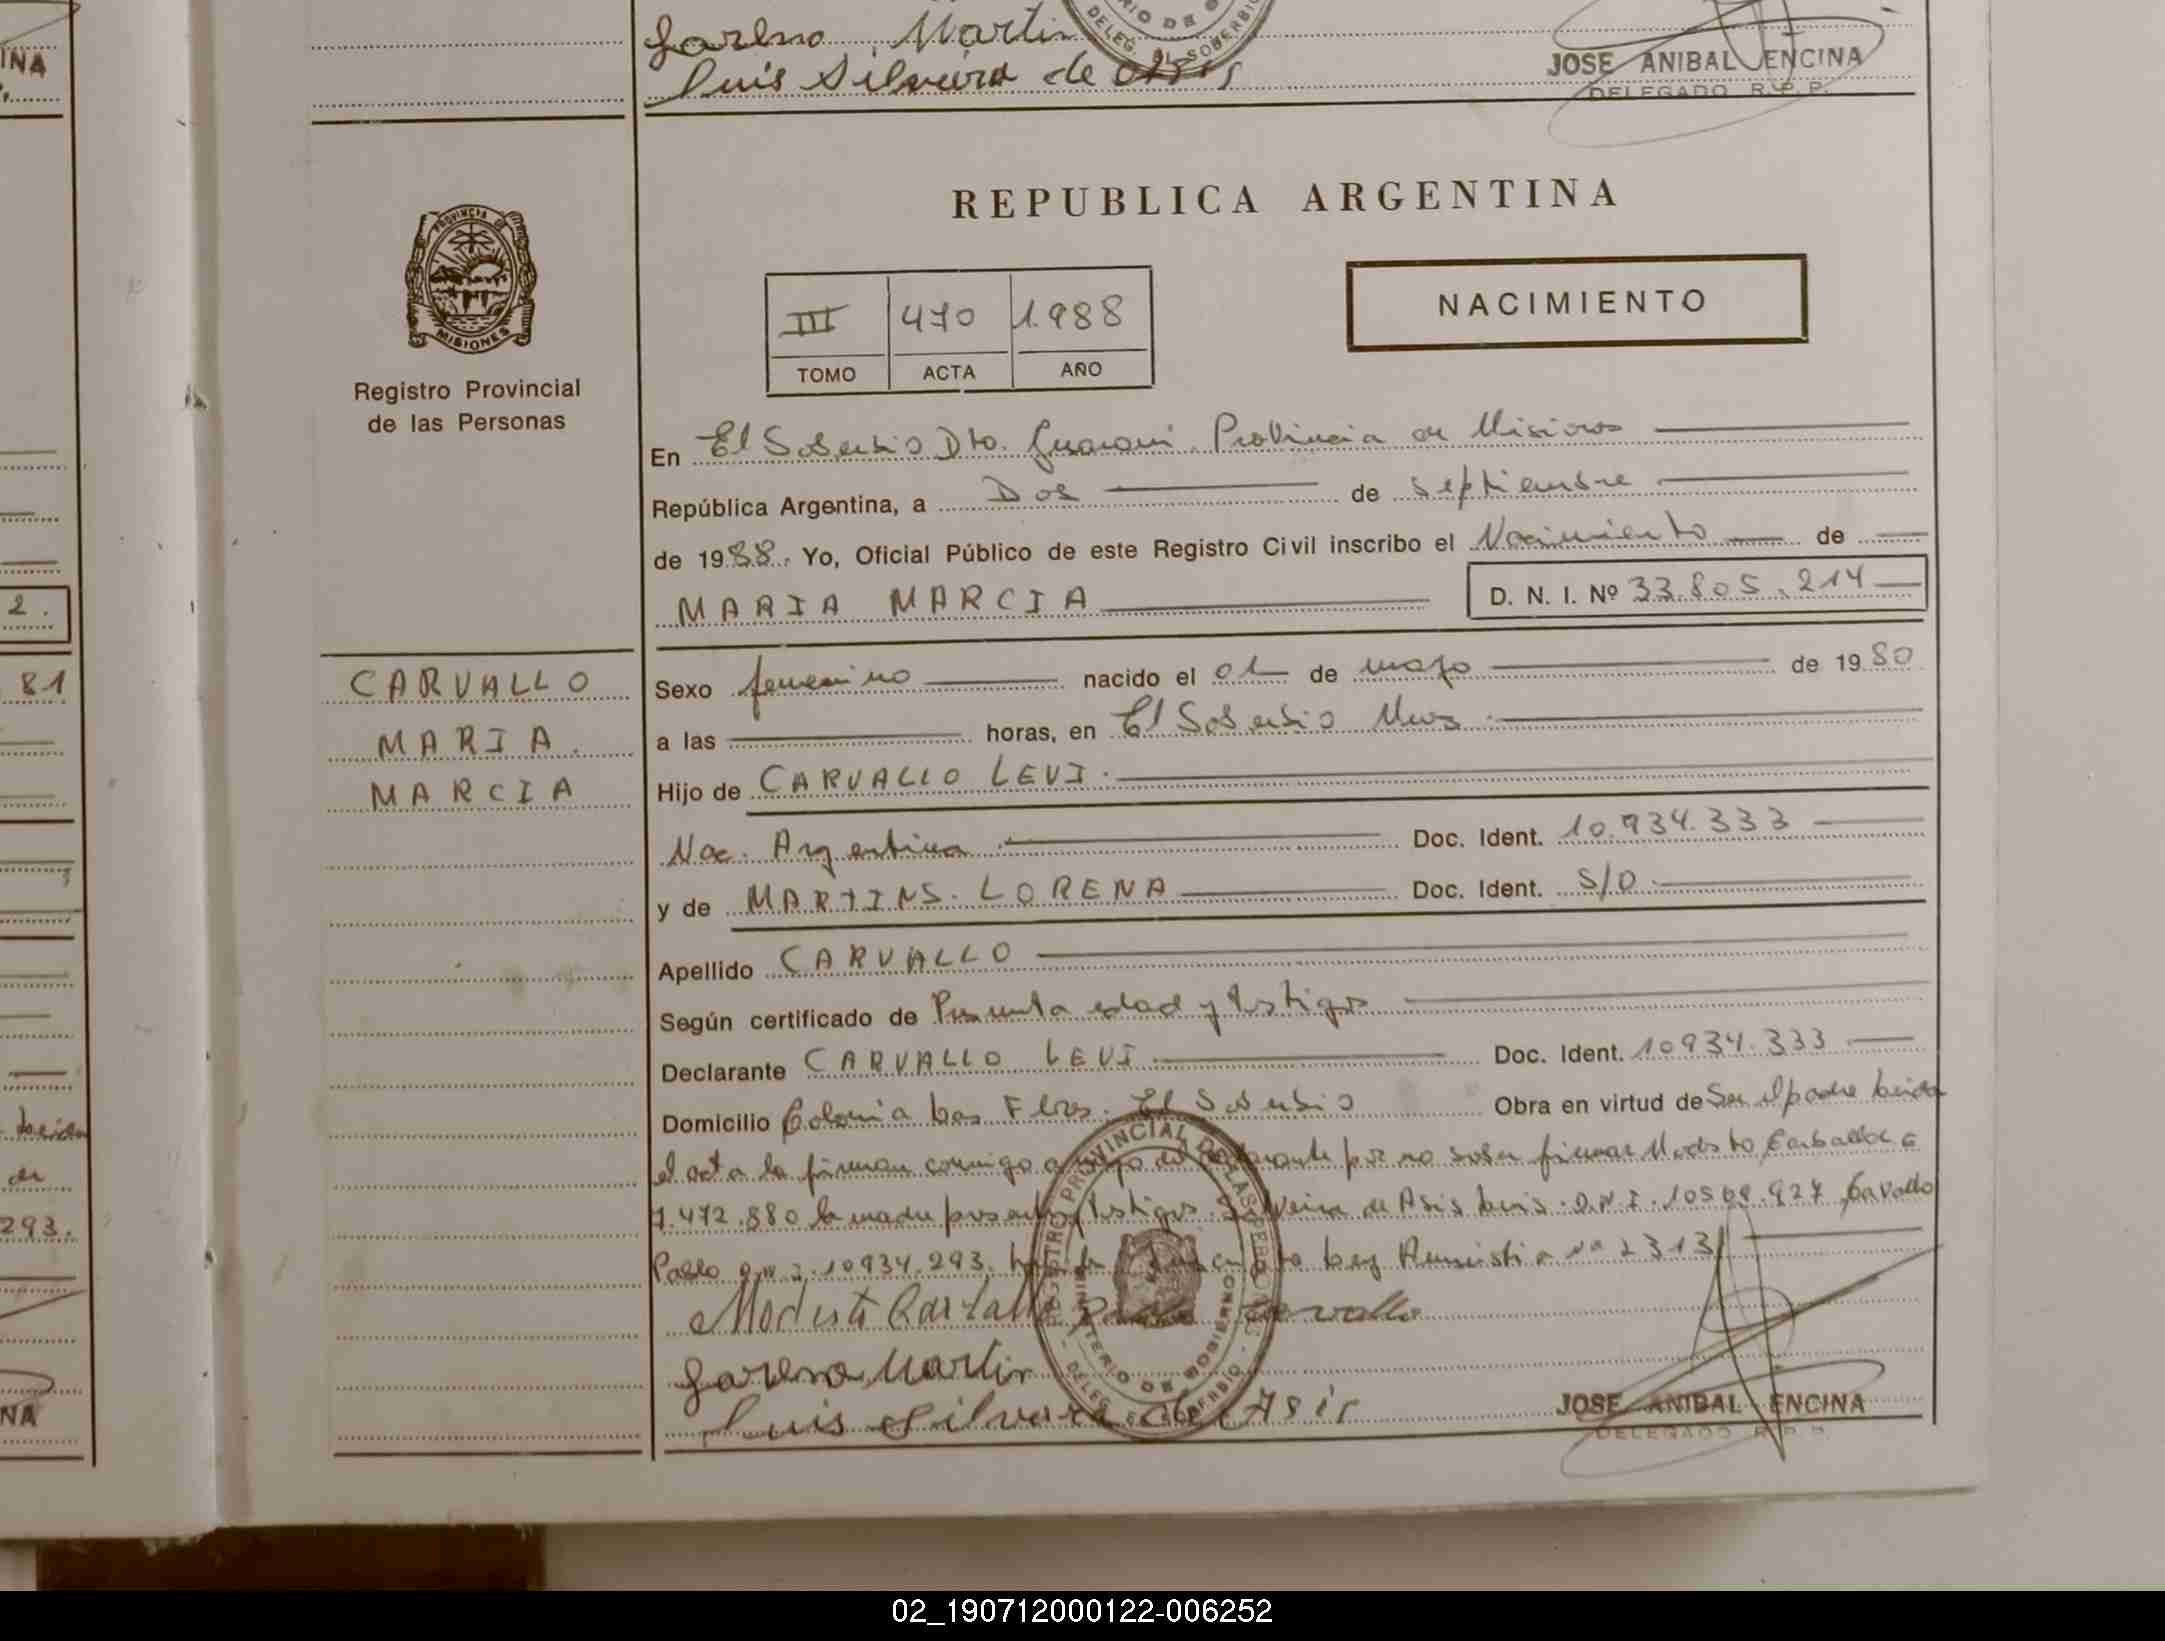 INA
Lorena Martin
Luis Silveira de Asis
DELEG. EL SOBERBIO
JOSE ANIBAL ENCINA
DELEGADO R. P. P.
REPUBLICA ARGENTINA
PROVINCIA
MISIONES
Registro Provincial
de las Personas
III 470 1988
TOMO ACTA AÑO
NACIMIENTO
En El Soberbio Dto. Guarani Provincia de Misiones
República Argentina, a Dos de Septiembre
de 1988. Yo, Oficial Público de este Registro Civil inscribo el Nacimiento de
MARIA MARCIA D. N. I. Nº 33.805.214
CARVALLO
MARIA
MARCIA
Sexo femenino nacido el 01 de mayo de 1980
a las horas, en El Soberbio Mnes
Hijo de CARVALLO LEVI
Nac. Argentina Doc. Ident. 10.934.333
y de MARTINS. LORENA Doc. Ident. S/D
Apellido CARVALLO
Según certificado de Presunta edad y testigos
Declarante CARVALLO LEVI Doc. Ident. 10934.333
Domicilio Colonia Las Flores. El Soberbio Obra en virtud de Ser el padre Leida
el acta la firman conmigo a ruego del declarante por no saber firmar Modesto Carballo
7.472.880 la madre presente y testigos Silveira de Asis Luis. D.N.I. 10569.927
Pablo D.N.I. 10934.293. Ley Amnistia nº 2313
Modesto Carballo
Lorena Martin
Luis Silvera de Asis
REGISTRO PROVINCIAL DE LAS PERSONAS
MINISTERIO DE GOBIERNO
DELEG. EL SOBERBIO
JOSE ANIBAL ENCINA
DELEGADO R. P. P.
2.
81
293.
NA
02_190712000122-006252